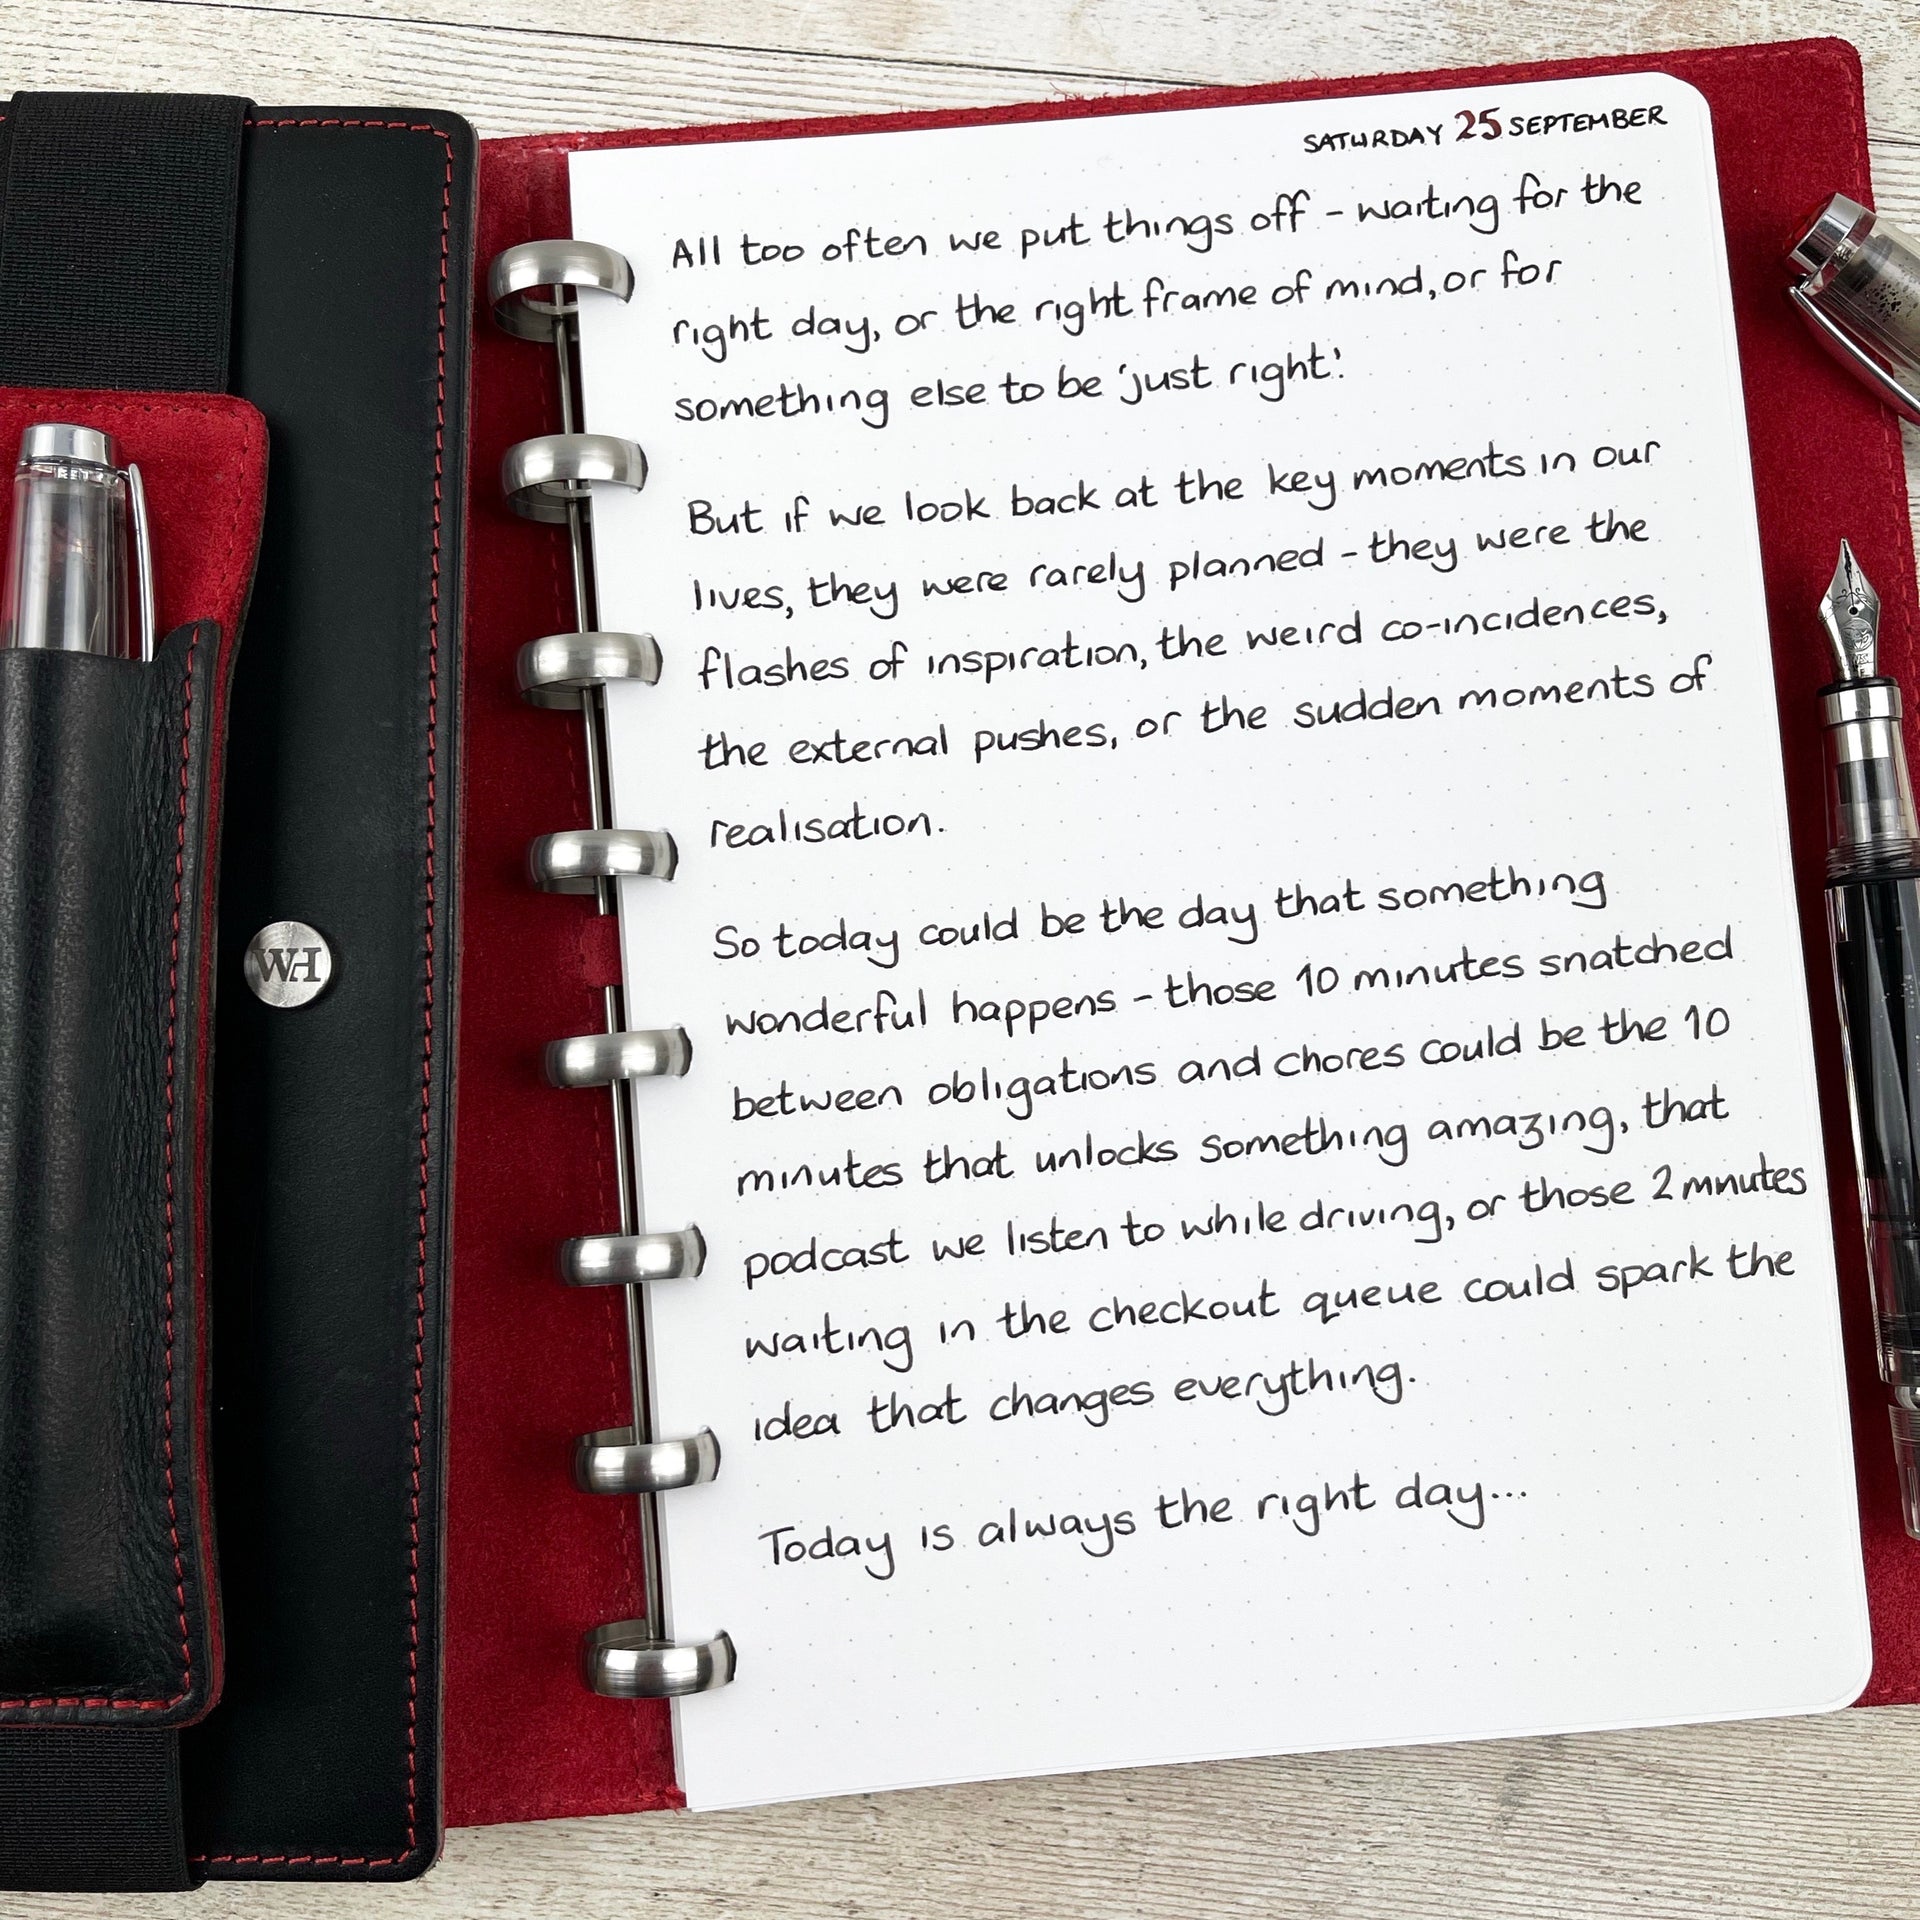 SATURDAY 25 SEPTEMBER
All too often we put things off - waiting for the
right day, or the right frame of mind, or for
something else to be 'just right'.
But if we look back at the key moments in our
lives, they were rarely planned - they were the
flashes of inspiration, the weird co-incidences,
the external pushes, or the sudden moments of
realisation.
So today could be the day that something
wonderful happens - those 10 minutes snatched
between obligations and chores could be the 10
minutes that unlocks something amazing, that
podcast we listen to while driving, or those 2 mnutes
waiting in the checkout queue could spark the
idea that changes everything.
Today is always the right day...
WH